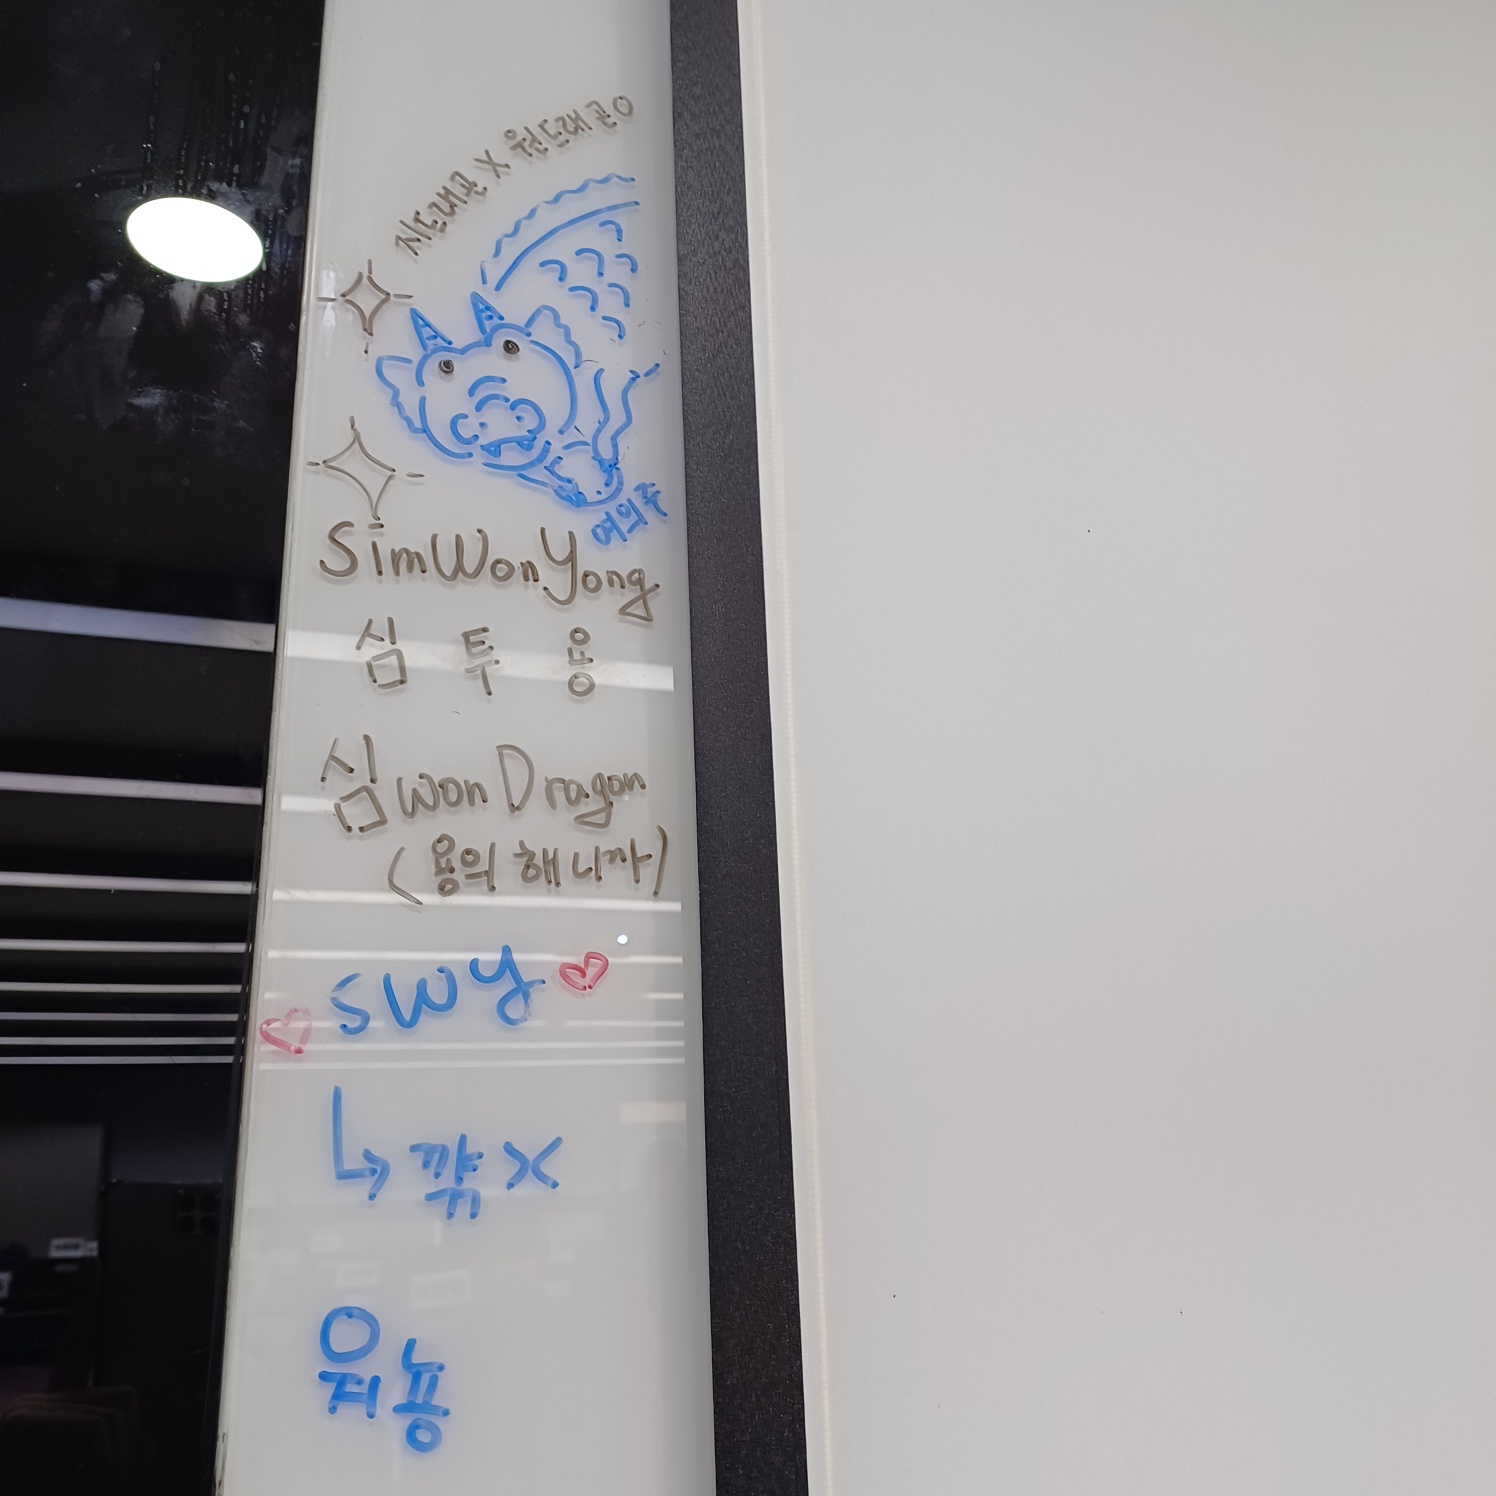 지드래곤 X 원드래곤
여의주
SimWonYong
심 투 용
심 won Dragon
(용의 해니까)
SWY
↳ 깎 X